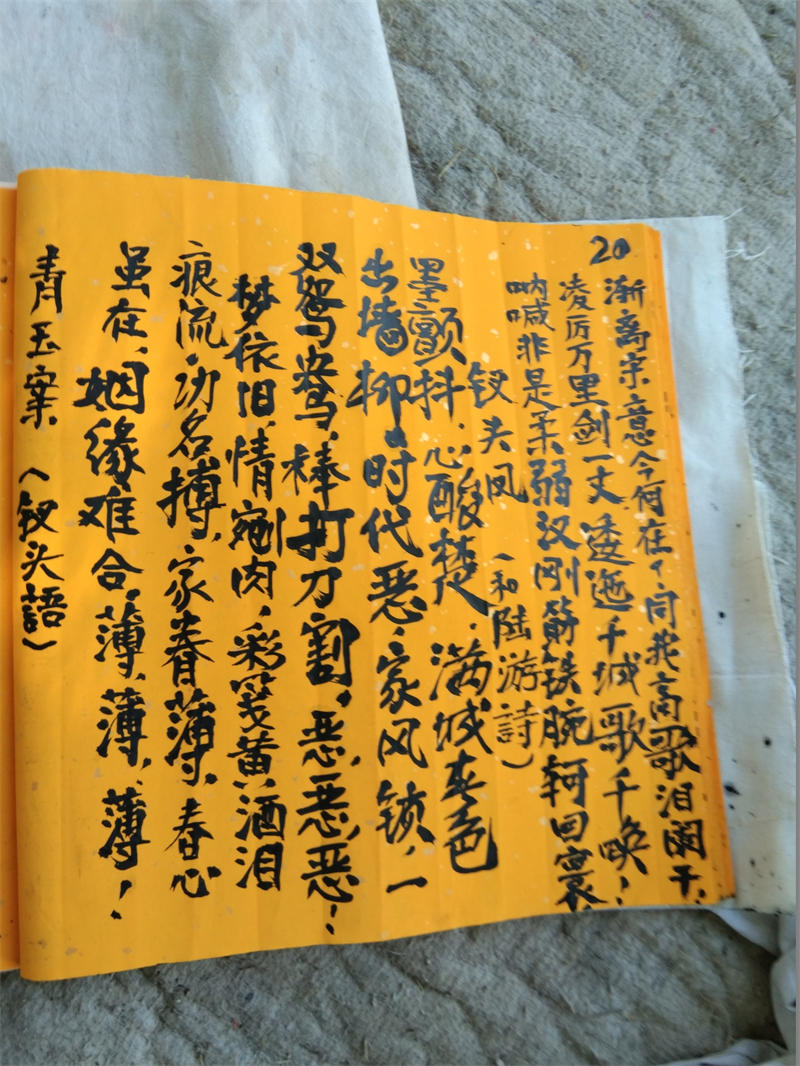 20
渐离宗意今何在?向我高歌泪阑干,
凌厉万里剑一丈逶迤千城歌千唤!
呐喊非是柔弱汉刚筋铁腕轲回寰,
钗头凤(和陆游詩)
墨颤抖,心酸楚,满城春色
出墙柳,时代恶,家风锁,一
双鸳鸯,棒打刀割,恶,恶,恶!
梦依旧,情剜肉,彩笺黄酒泪
痕流,功名搏,家眷薄,春心
虽在,姻缘难合,薄,薄,薄!
青玉案(钗头語)